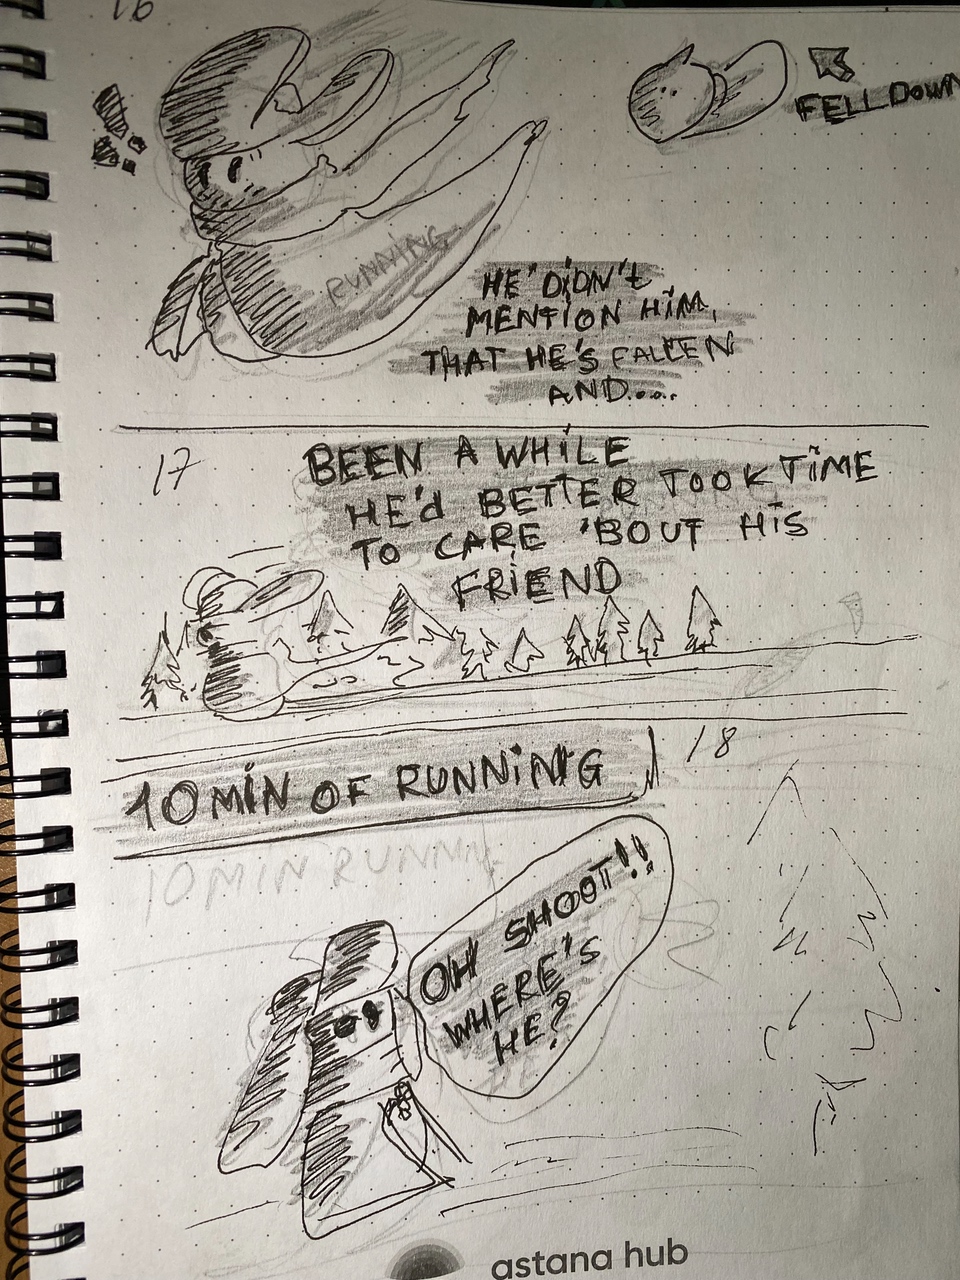 16
FELL DOWN
RUNNING
HE'DIDN't
MENTION HiM,
THAT HE'S FALLEN
AND....
17
BEEN A WHiLE
HE'd BETTER TOOK TiME
TO CARE 'BOUT HiS
FRiEND
18
10 MiN OF RUNNiNG
10 MIN RUNNIN
OH SHOOT!!
WHERE'S
HE?
astana hub